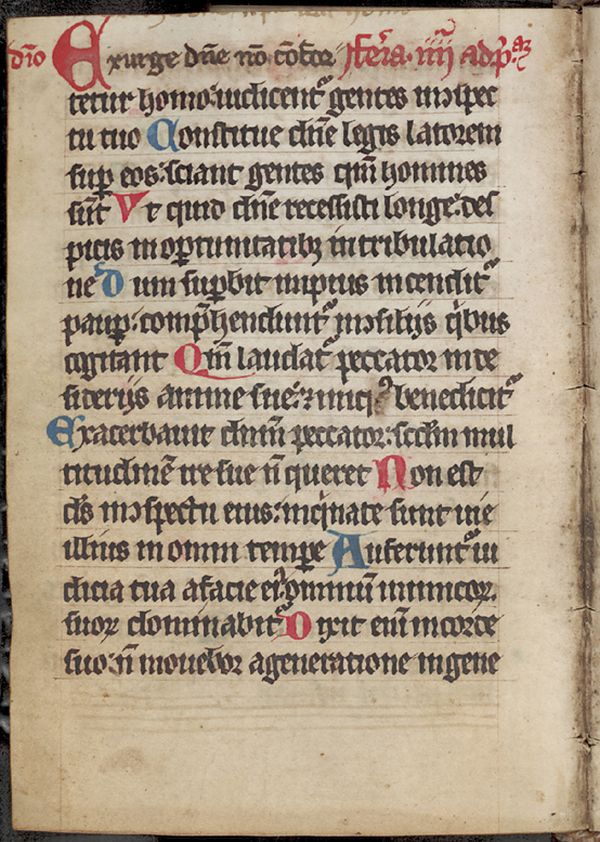 dīo Exurge dn̄e nō cōfor feria iiij ad p̄ᵃᵐ
tetur homo: iudicent᷑ gentes in ɔspec
tu tuo Constitue dn̄e legis latorem
sup̱ eos: sciant gentes qm̄ homines
sūt Ut quid dn̄e recessisti longe: des
picis in op̱tunitatibꝫ in tribulatio
ne Dum sup̱bit impius incendit᷑
paup̱: comp̱hendunt᷑ in ɔsilijs qͥbus
cogitant Qm̄ laudat᷑ peccator in de
siderijs anime sue: ⁊ iniqꝰ benedicit᷑
Exacerbauit dn̄m peccator: scdm̄ mul
titudinē ire sue n̄ queret Non est
ds̄ in ɔspectu eius: inqͥnate sunt uie
illius in omni temp̱e Auferunt᷑ iu
dicia tua a facie eiꝰ: omniū inimicoꝝ
suoꝝ dominabit᷑ Dixit eni̅ in corde
suo: n̄ mouebor a generatione in gene